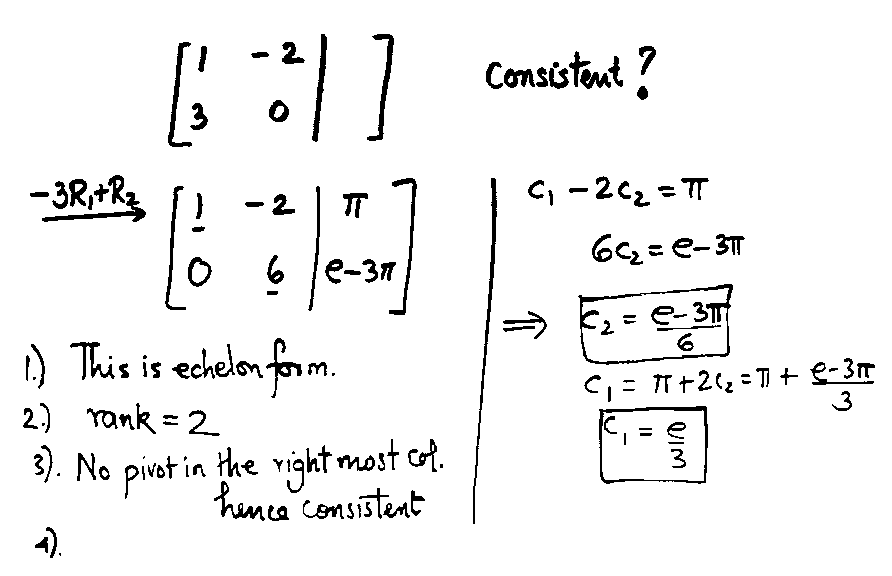 [1 -2 | ]
[3 0 | ]
Consistent?
-3R₁+R₂ → [1 -2 | π]
[0 6 | e-3π]
1.) This is echelon form.
2.) rank = 2
3). No pivot in the right most col.
hence consistent
4).
c₁ - 2c₂ = π
6c₂ = e-3π
⇒ c₂ = (e-3π)/6
c₁ = π+2c₂ = π + (e-3π)/3
c₁ = e/3